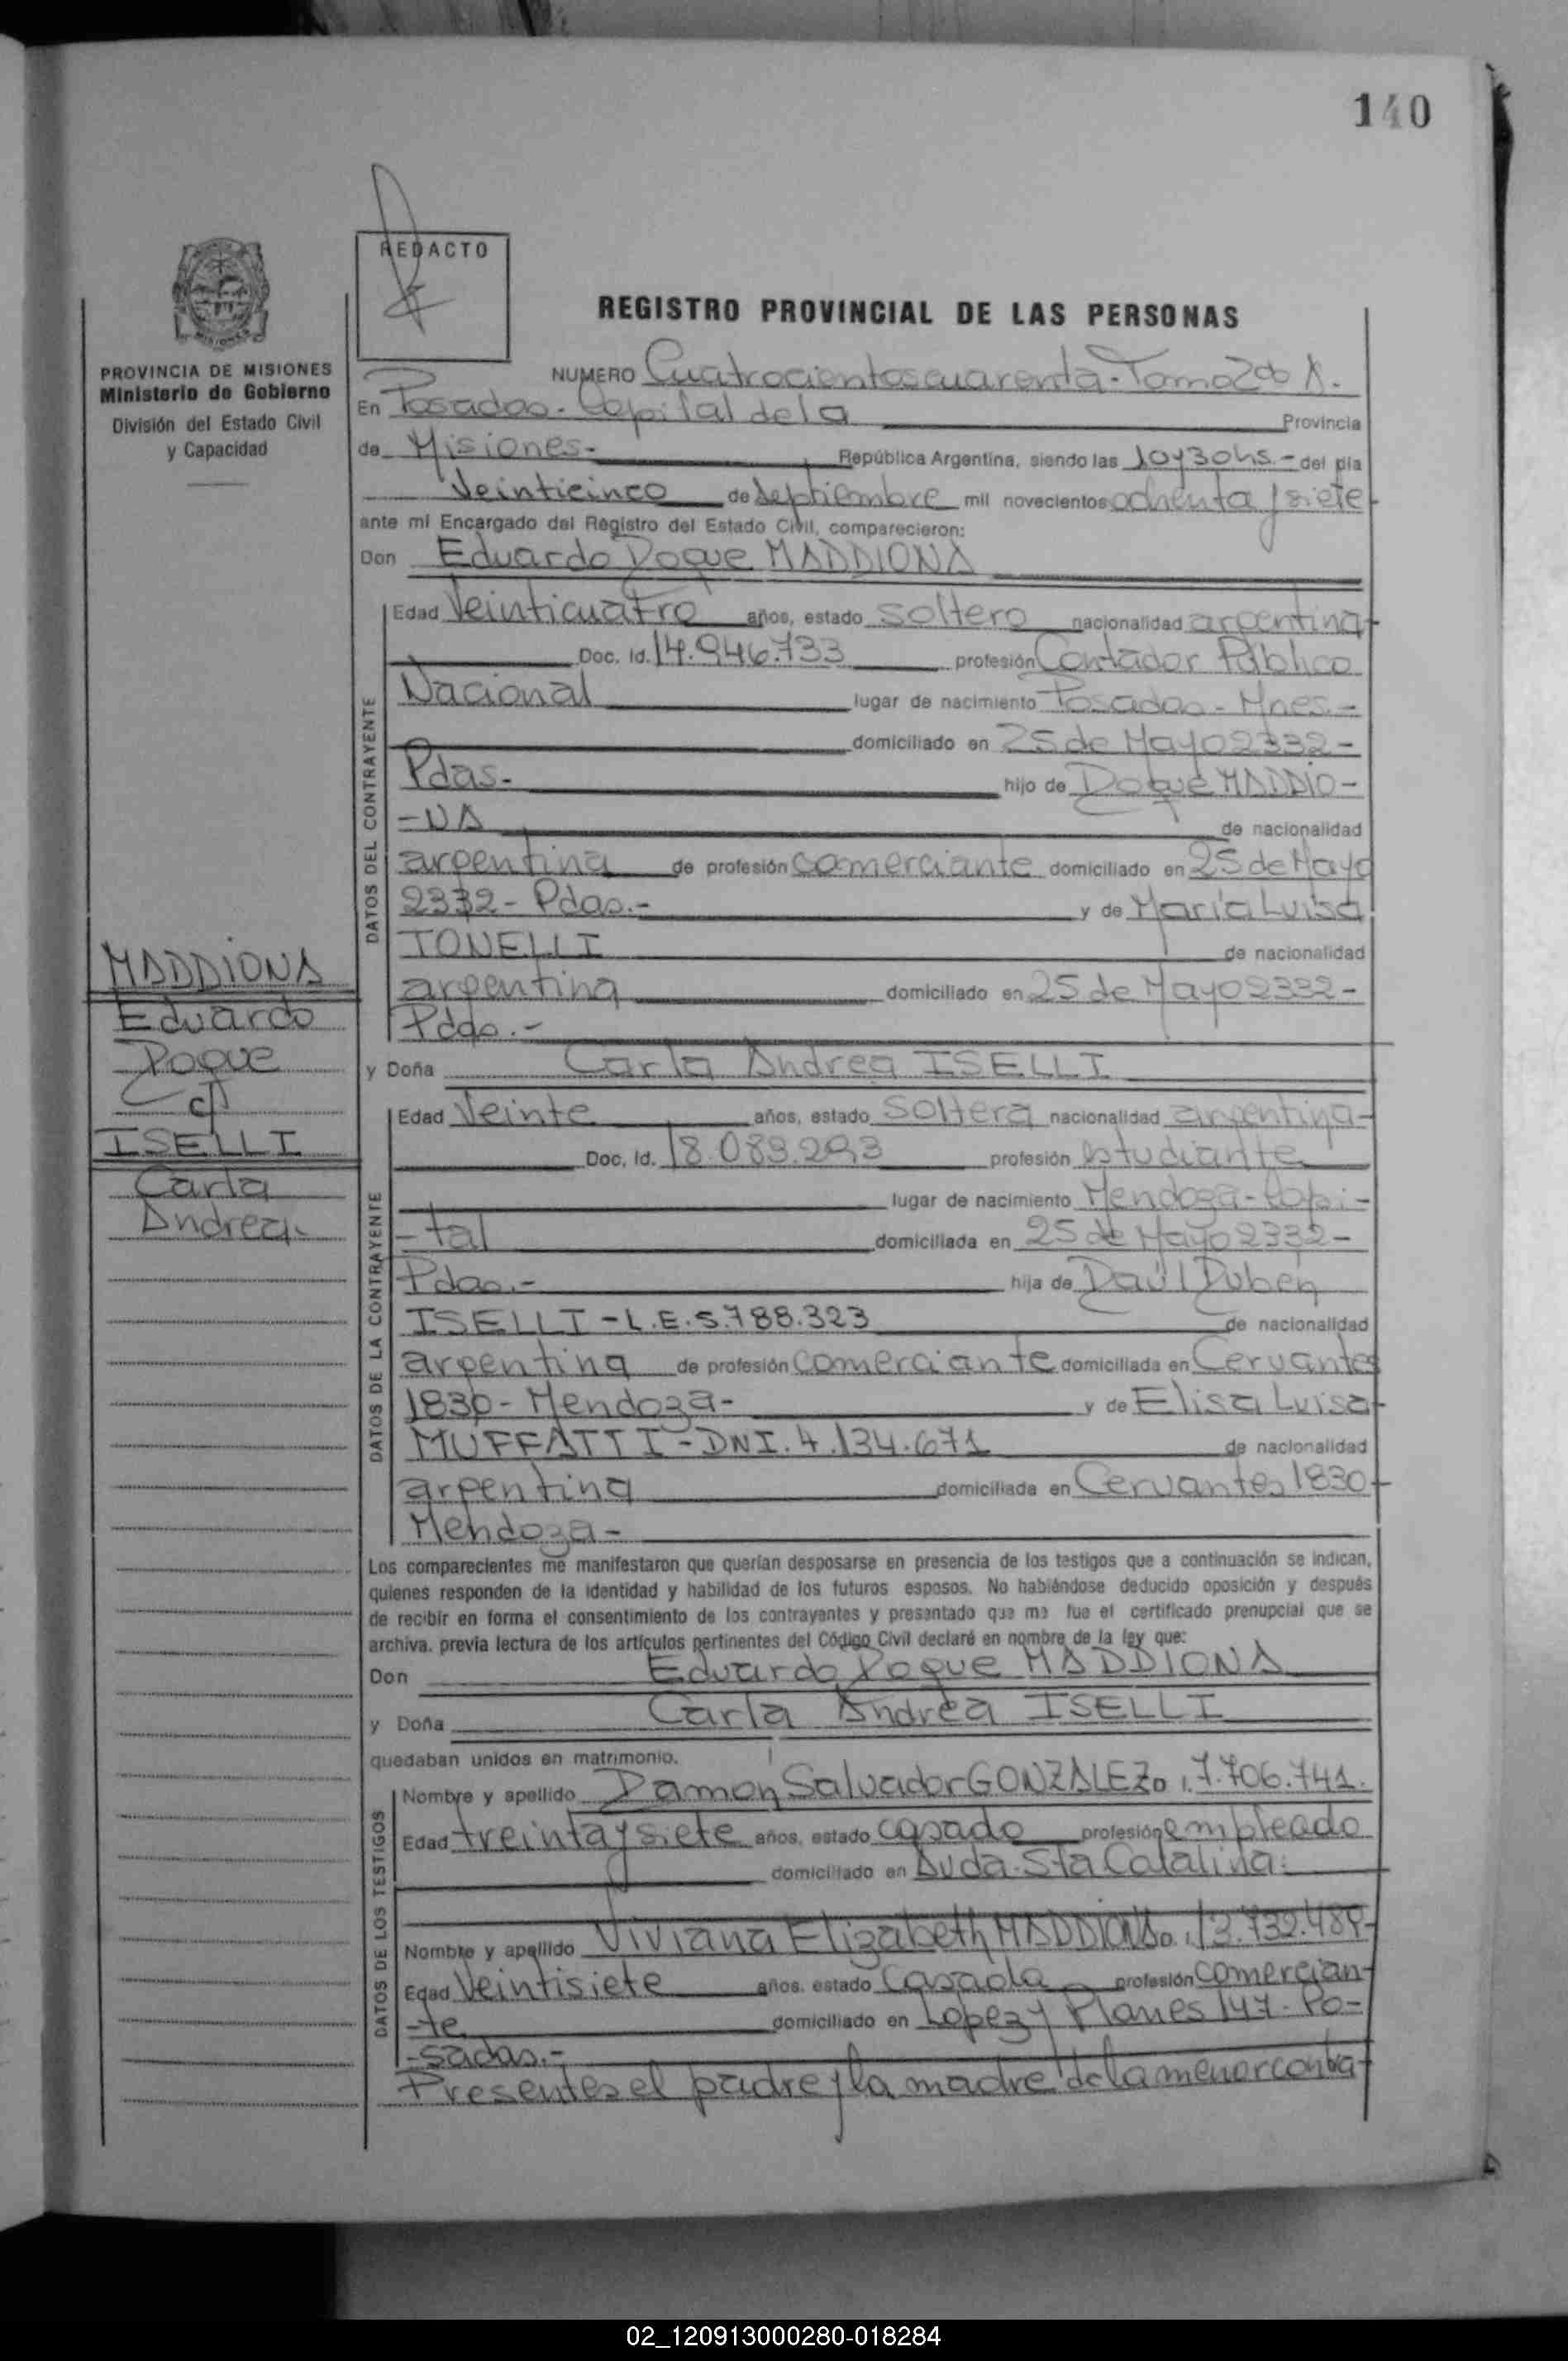 140
REDACTO
REGISTRO PROVINCIAL DE LAS PERSONAS
PROVINCIA DE MISIONES
Ministerio de Gobierno
División del Estado Civil
y Capacidad
NUMERO Cuatrocientos cuarenta - Tomo 2do A.-
En Posadas - Capital de la Provincia
de Misiones.- República Argentina, siendo las 10 y 30 hs.- del día
Veinticinco de Septiembre mil novecientos ochenta y siete
ante mi Encargado del Registro del Estado Civil, comparecieron:
Don Eduardo Roque MADDIONA
DATOS DEL CONTRAYENTE
Edad Veinticuatro años, estado soltero nacionalidad argentina
Doc. Id. 14.946.733 profesión Contador Público
Nacional lugar de nacimiento Posadas - Mnes.-
domiciliado en 25 de Mayo 2332-
Pdas.- hijo de Roque MADDIO-
-NA de nacionalidad
argentina de profesión comerciante domiciliado en 25 de Mayo
2332- Pdas.- y de María Luisa
TONELLI de nacionalidad
argentina domiciliado en 25 de Mayo 2332-
Pdas.-
MADDIONA
Eduardo
Roque
c/
ISELLI
Carla
Andrea.
y Doña Carla Andrea ISELLI
DATOS DE LA CONTRAYENTE
Edad Veinte años, estado soltera nacionalidad argentina-
Doc. Id. 18.083.293 profesión estudiante
lugar de nacimiento Mendoza-Capi-
-tal domiciliada en 25 de Mayo 2332-
Pdas.- hija de Raúl Rubén
ISELLI - L.E. 5.788.323 de nacionalidad
argentina de profesión comerciante domiciliada en Cervantes
1830- Mendoza- y de Elisa Luisa
MUFFATTI - DNI. 4.134.671 de nacionalidad
argentina domiciliada en Cervantes 1830-
Mendoza-
Los comparecientes me manifestaron que querían desposarse en presencia de los testigos que a continuación se indican,
quienes responden de la identidad y habilidad de los futuros esposos. No habiéndose deducido oposición y después
de recibir en forma el consentimiento de los contrayentes y presentado que me fue el certificado prenupcial que se
archiva. previa lectura de los artículos pertinentes del Código Civil declaré en nombre de la ley que:
Don Eduardo Roque MADDIONA
y Doña Carla Andrea ISELLI
quedaban unidos en matrimonio.
DATOS DE LOS TESTIGOS
Nombre y apellido Ramón Salvador GONZALEZ D.I. 7.706.741.
Edad treinta y siete años, estado casado profesión empleado
domiciliado en Avda. Sta Catalina.
Nombre y apellido Viviana Elizabeth MADDIONA D.I. 13.732.484-
Edad Veintisiete años, estado casada profesión comercian-
-te domiciliado en Lopez y Planes 147- Po-
-sadas.-
Presentes el padre y la madre de la menor contra-
02_120913000280-018284